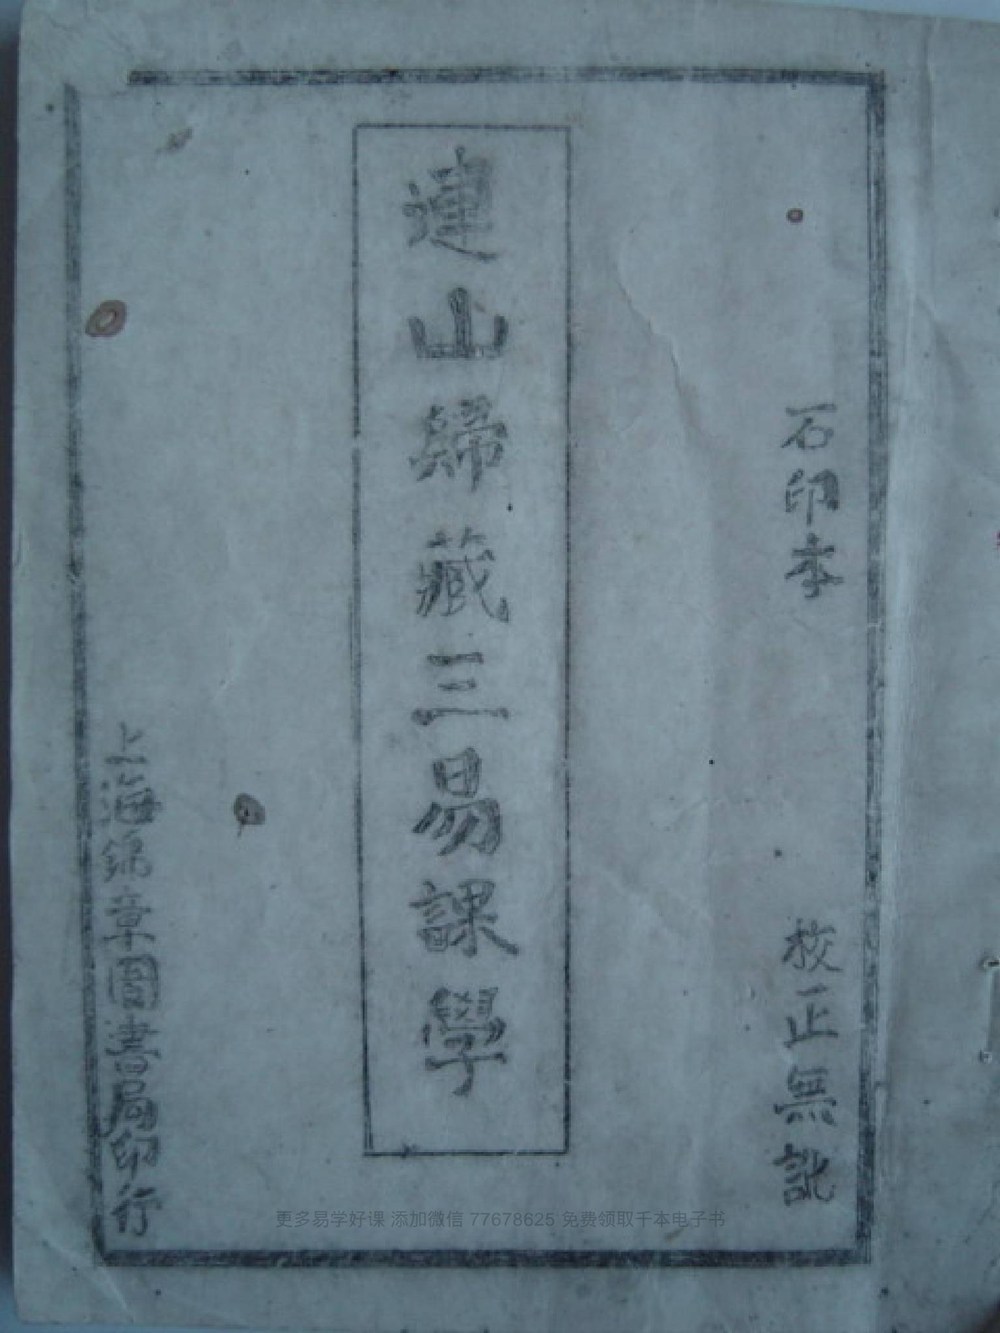 石印本 校正無訛
連山歸藏三易課學
上海錦章圖書局印行
更多易学好课 添加微信 77678625 免费领取千本电子书